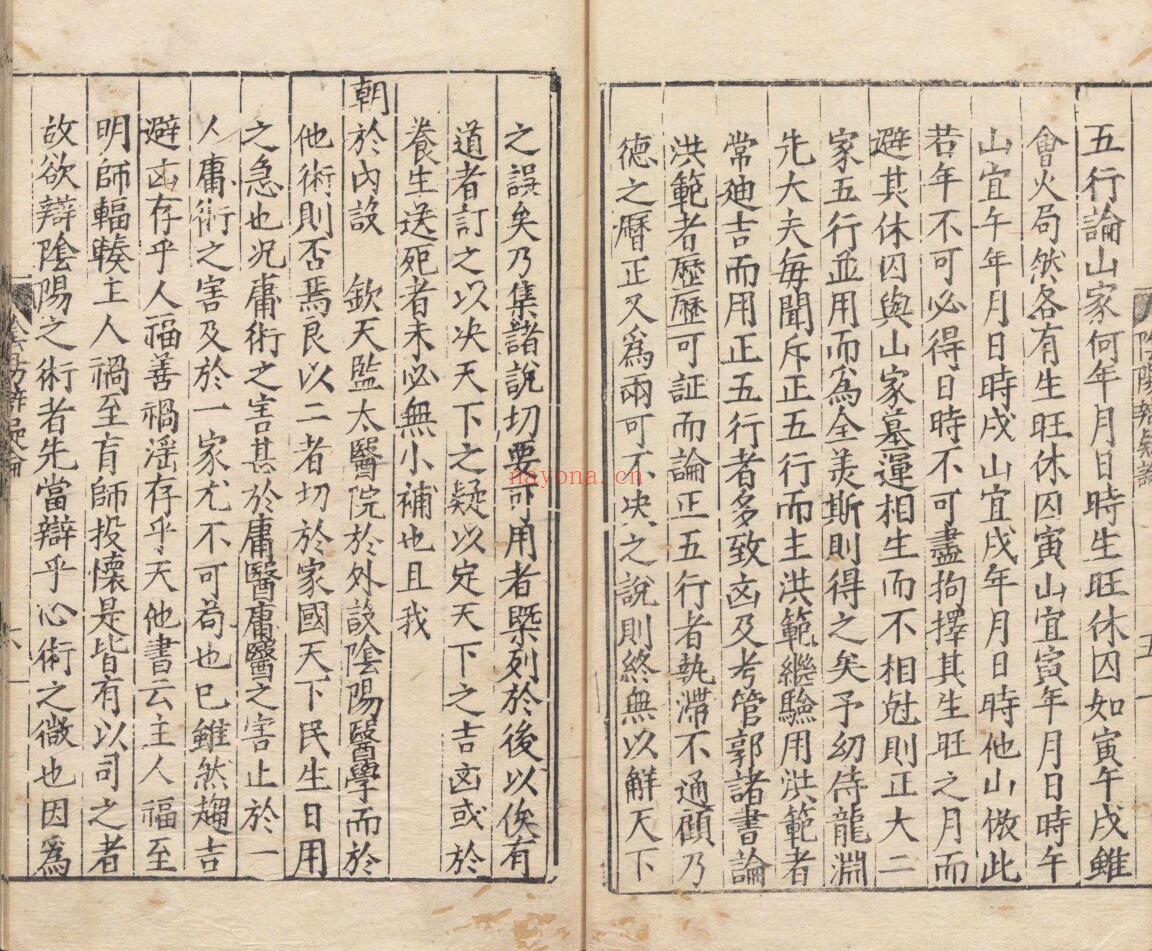 五行論山家何年月日時生旺休囚如寅午戌雖
會火局然各有生旺休囚寅山宜寅年月日時午
山宜午年月日時戌山宜戌年月日時他山倣此
若年不可必得日時不可盡拘擇其生旺之月而
避其休囚與山家墓運相生而不相尅則正大二
家五行並用而為全美斯則得之矣予幼侍龍淵
先大夫每聞斥正五行而主洪範繼驗用洪範者
常廸吉而用正五行者多致凶及考管郭諸書論
洪範者歷歷可証而論正五行者執滯不通頋乃
德之曆正又為兩可不决之說則終無以解天下
之誤矣乃集諸說切要可用者槩列於後以俟有
道者訂之以决天下之疑以定天下之吉凶或於
養生送死者未必無小補也且我
朝於內設　欽天監太醫院於外設隂陽醫學而於
他術則否焉良以二者切於家國天下民生日用
之急也况庸術之害甚於庸醫庸醫之害止於一
人庸術之害及於一家尤不可苟也已雖然趨吉
避凶存乎人福善禍滛存乎天他書云主人福至
明師輻輳主人禍至盲師投懷是皆有以司之者
故欲辯隂陽之術者先當辯乎心術之微也因為
陰陽辨疑論
五
六
nayona.cn